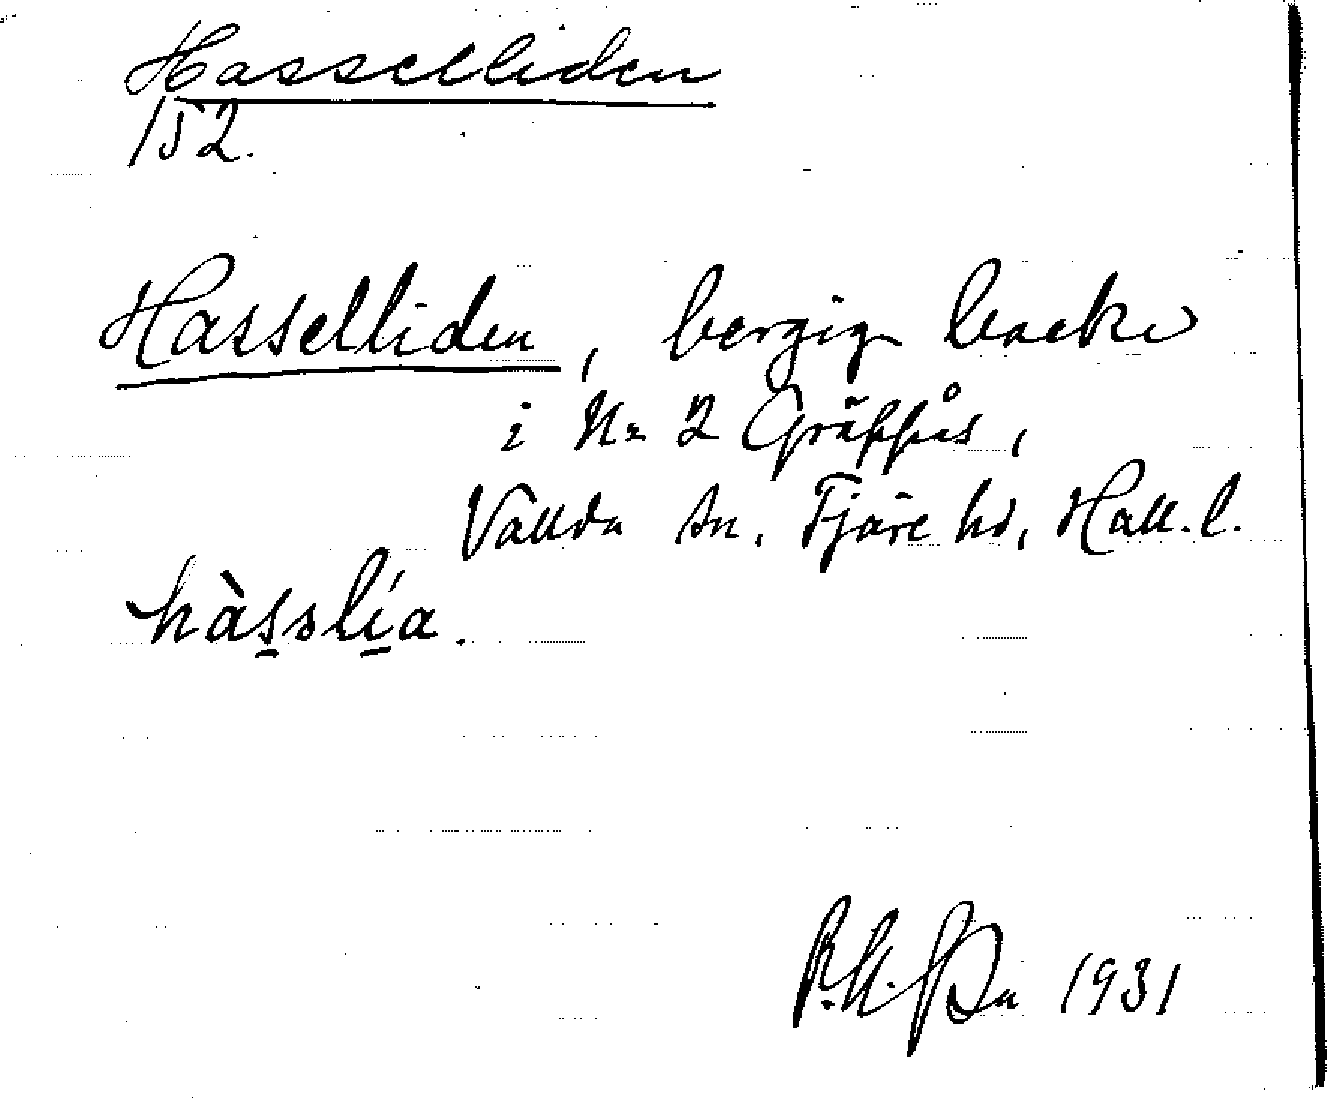 Hasselliden
152.
Hasselliden, bergig backe
i Nr 2 Gräppås,
Vallda sn. Fjäre hd, Hall. l.
hàsslía.
1931